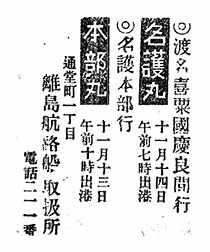 ◎渡名喜粟國慶良間行
名護丸
十一月十四日
午前七時出港
◎名護本部行
本部丸
十一月十三日
午前十時出港
通堂町一丁目
離島航路船取扱所
電話二一一番